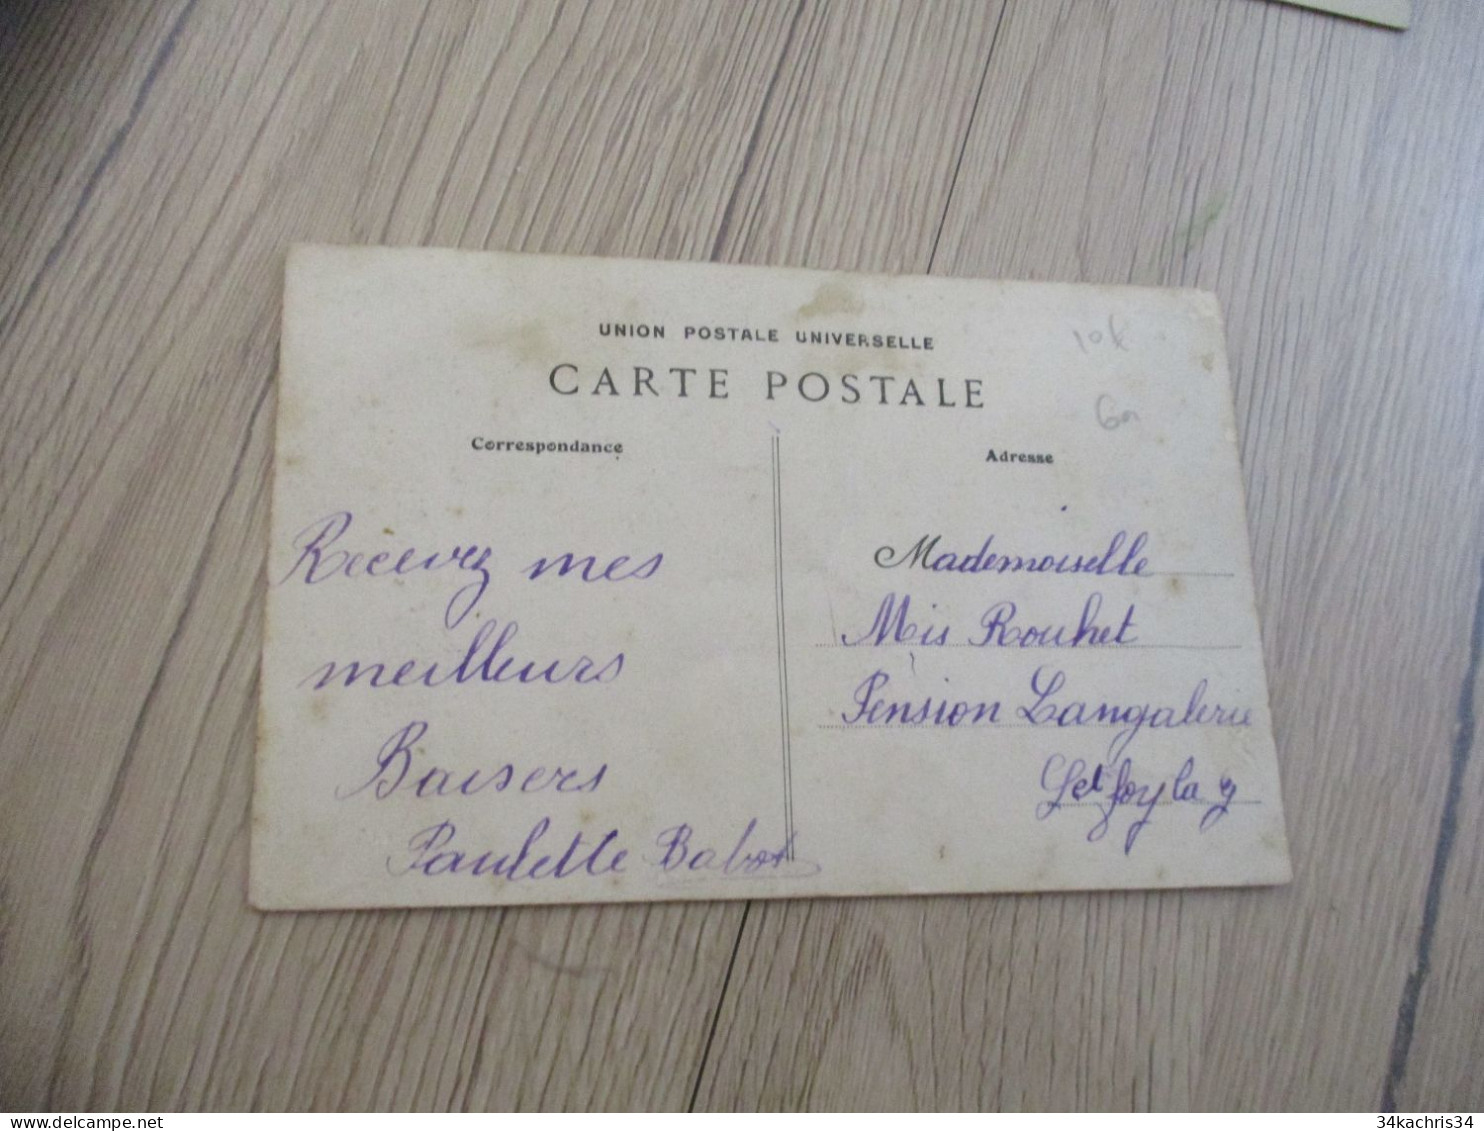 UNION POSTALE UNIVERSELLE
CARTE POSTALE
Correspondance
Adresse
Recevez mes
meilleurs
Baisers
Paulette Babot
Mademoiselle
Mis Rouhet
Pension Langalerie
foy la
delcampe.net
34kachris34